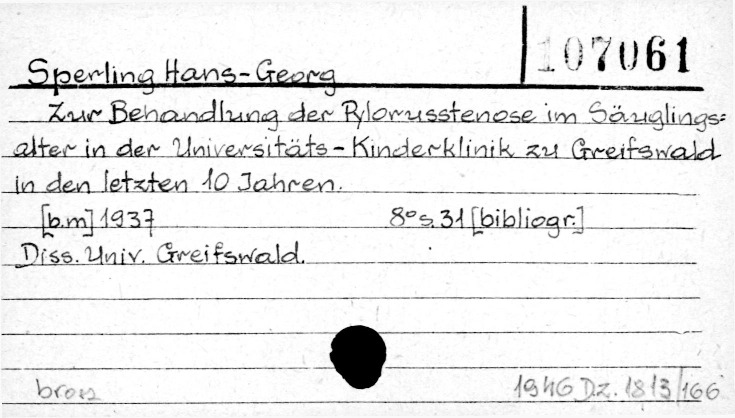 107061
Sperling Hans-Georg
Zur Behandlung der Pylorusstenose im Säuglings=
alter in der Universitäts-Kinderklinik zu Greifswald
in den letzten 10 Jahren.
[b.m] 1937 8° s. 31 [bibliogr.]
Diss. Univ. Greifswald.
brosz
1946 Dz. 1813/166